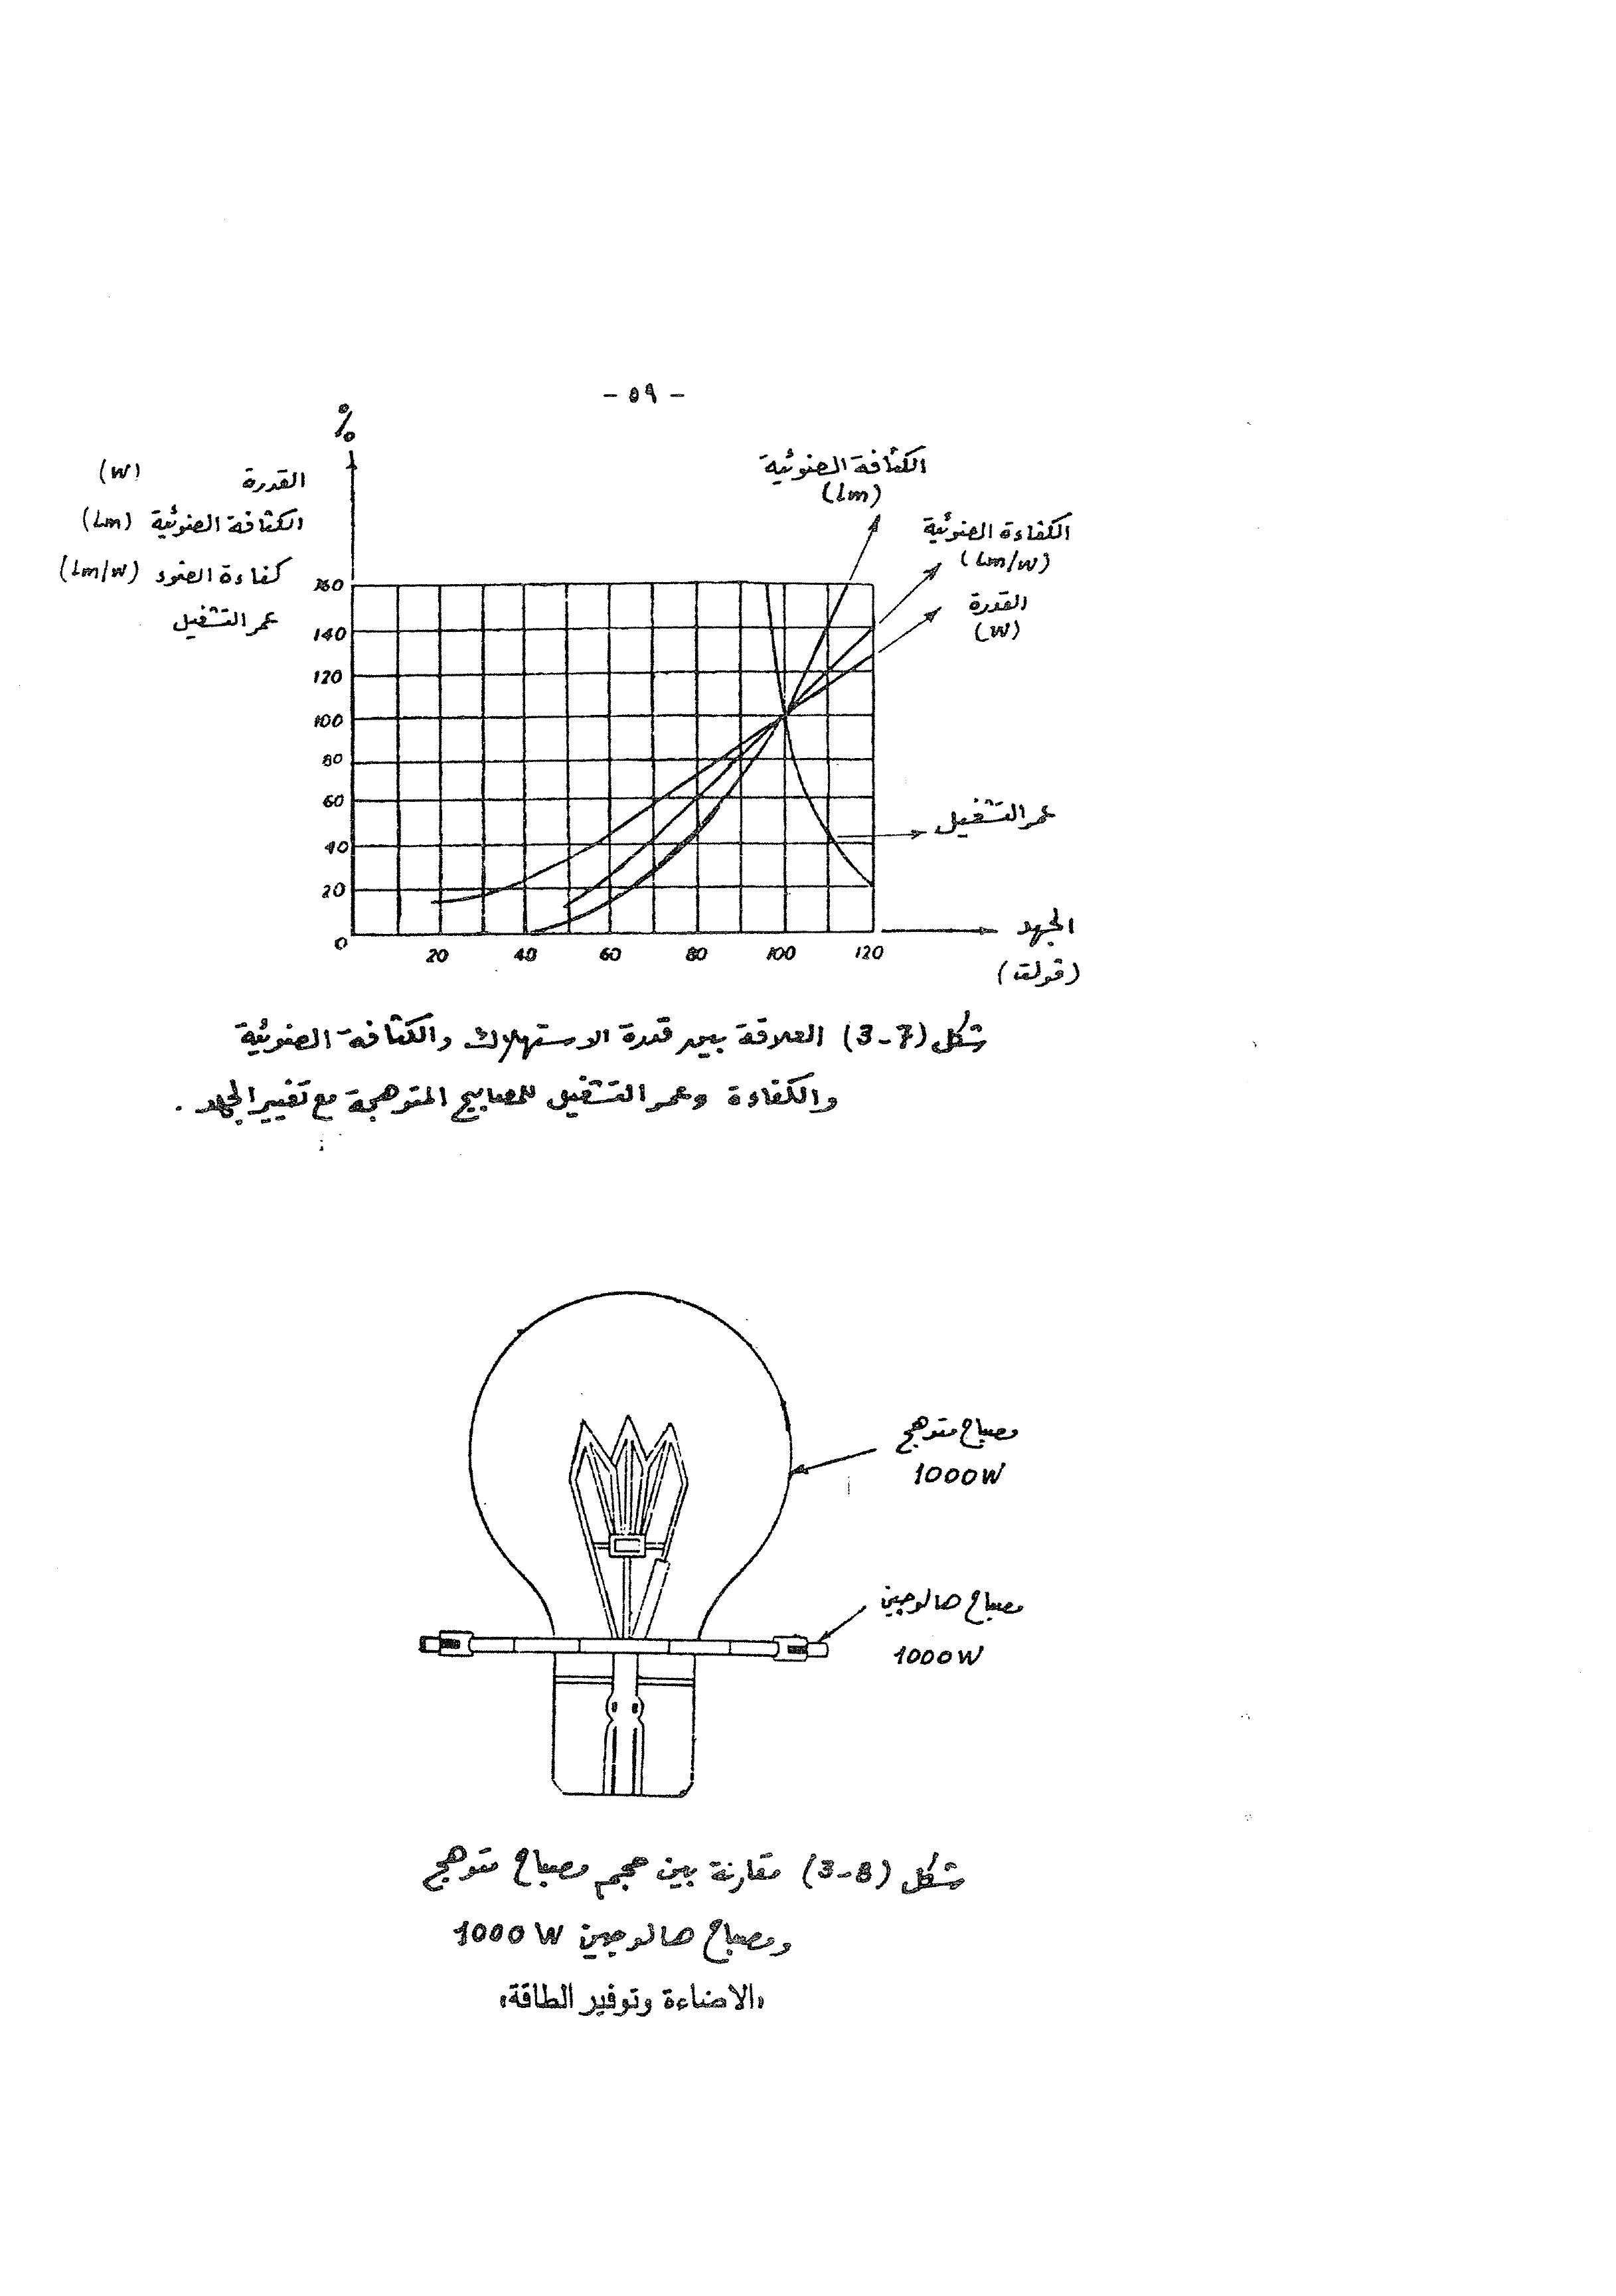 - ٥٩ -
%
القدرة (W)
الكثافة الضوئية (Lm)
كفاءة الضوء (Lm/W)
عمر التشغيل
الكثافة الضوئية
(Lm)
الكفاءة الضوئية
(Lm/W)
القدرة
(W)
عمر التشغيل
160
140
120
100
80
60
40
20
0
20 40 60 80 100 120
الجهد
(ڤولت)
شكل (3-7) العلاقة بين قدرة الاستهلاك والكثافة الضوئية
والكفاءة وعمر التشغيل للمصابيح المتوهجة مع تغيير الجهد .
مصباح متوهج
1000W
مصباح هالوجين
1000W
شكل (3-8) مقارنة بين حجم مصباح متوهج
ومصباح هالوجين 1000 W
«الاضاءة وتوفير الطاقة»